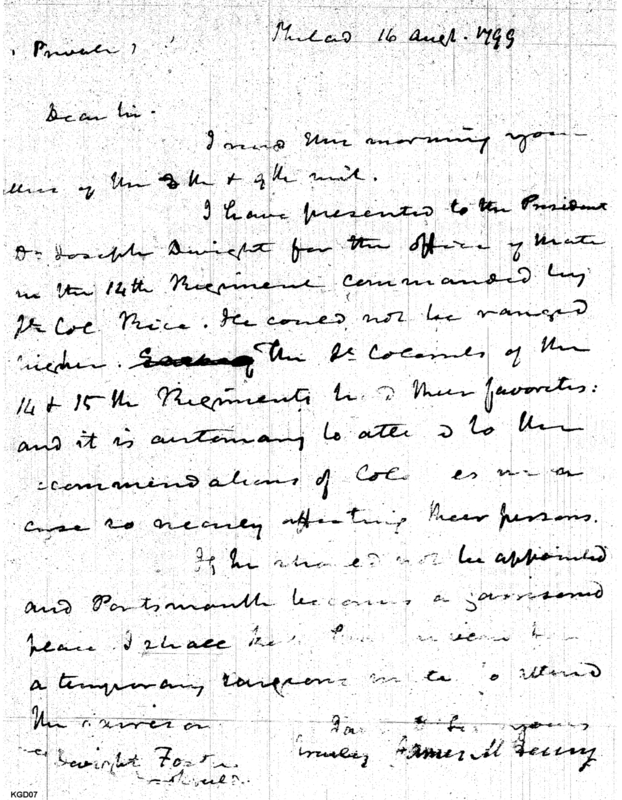 Private
Philad 16 augt. 1799
Dear Sir.
I recd this morning your
letters of the 8th & 9th inst.
I have presented to the President
Dr Joseph Dwight for the office of Mate
in the 14th Regiment commanded by
Lt Col Rice. He could not be ranged
higher. The Lt Colonels of the
14 & 15th Regiments had their favorites:
and it is customary to attend to the
recommendations of Colonels in a
case so nearly affecting their persons.
If he should not be appointed
and Portsmouth becomes a garrisoned
place I shall
a temporary surgeons mate to attend
the garrison
I am Dr Sir yours
truly James McHenry
Dwight Foster
KGD07